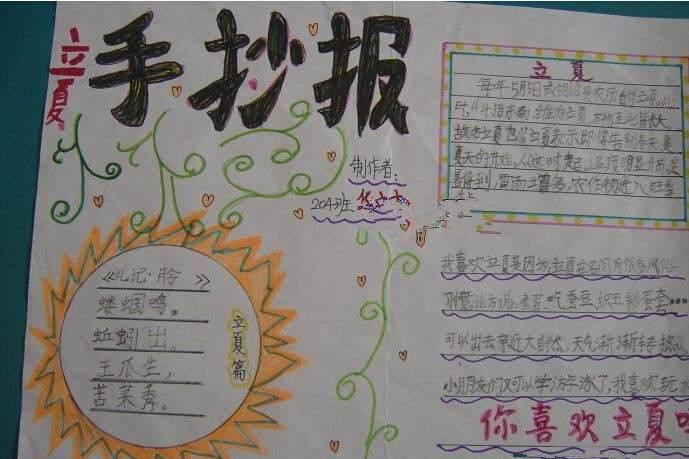 立夏
手抄报
制作者:
204班
《礼记·月令》
蝼蝈鸣,
蚯蚓出。
王瓜生,
苦菜秀。
立夏篇
立夏
每年5月5日或6日是农历的立夏
时,"斗指东南 维为立夏,万物至此皆长大,
故名立夏也。"立夏表示即将告别春天,是
夏天的开始。人们 温度明显升高,炎
暑将到,雷雨增多,农作物进入旺季
我喜欢立夏是因为立夏在各间有很多风俗
习惯,比方说:煮蛋、吃蚕豆、织五彩蛋套……
可以出去亲近大自然,天气渐渐转热
小朋友们又可以学游泳了,我喜欢玩水
你喜欢立夏吗